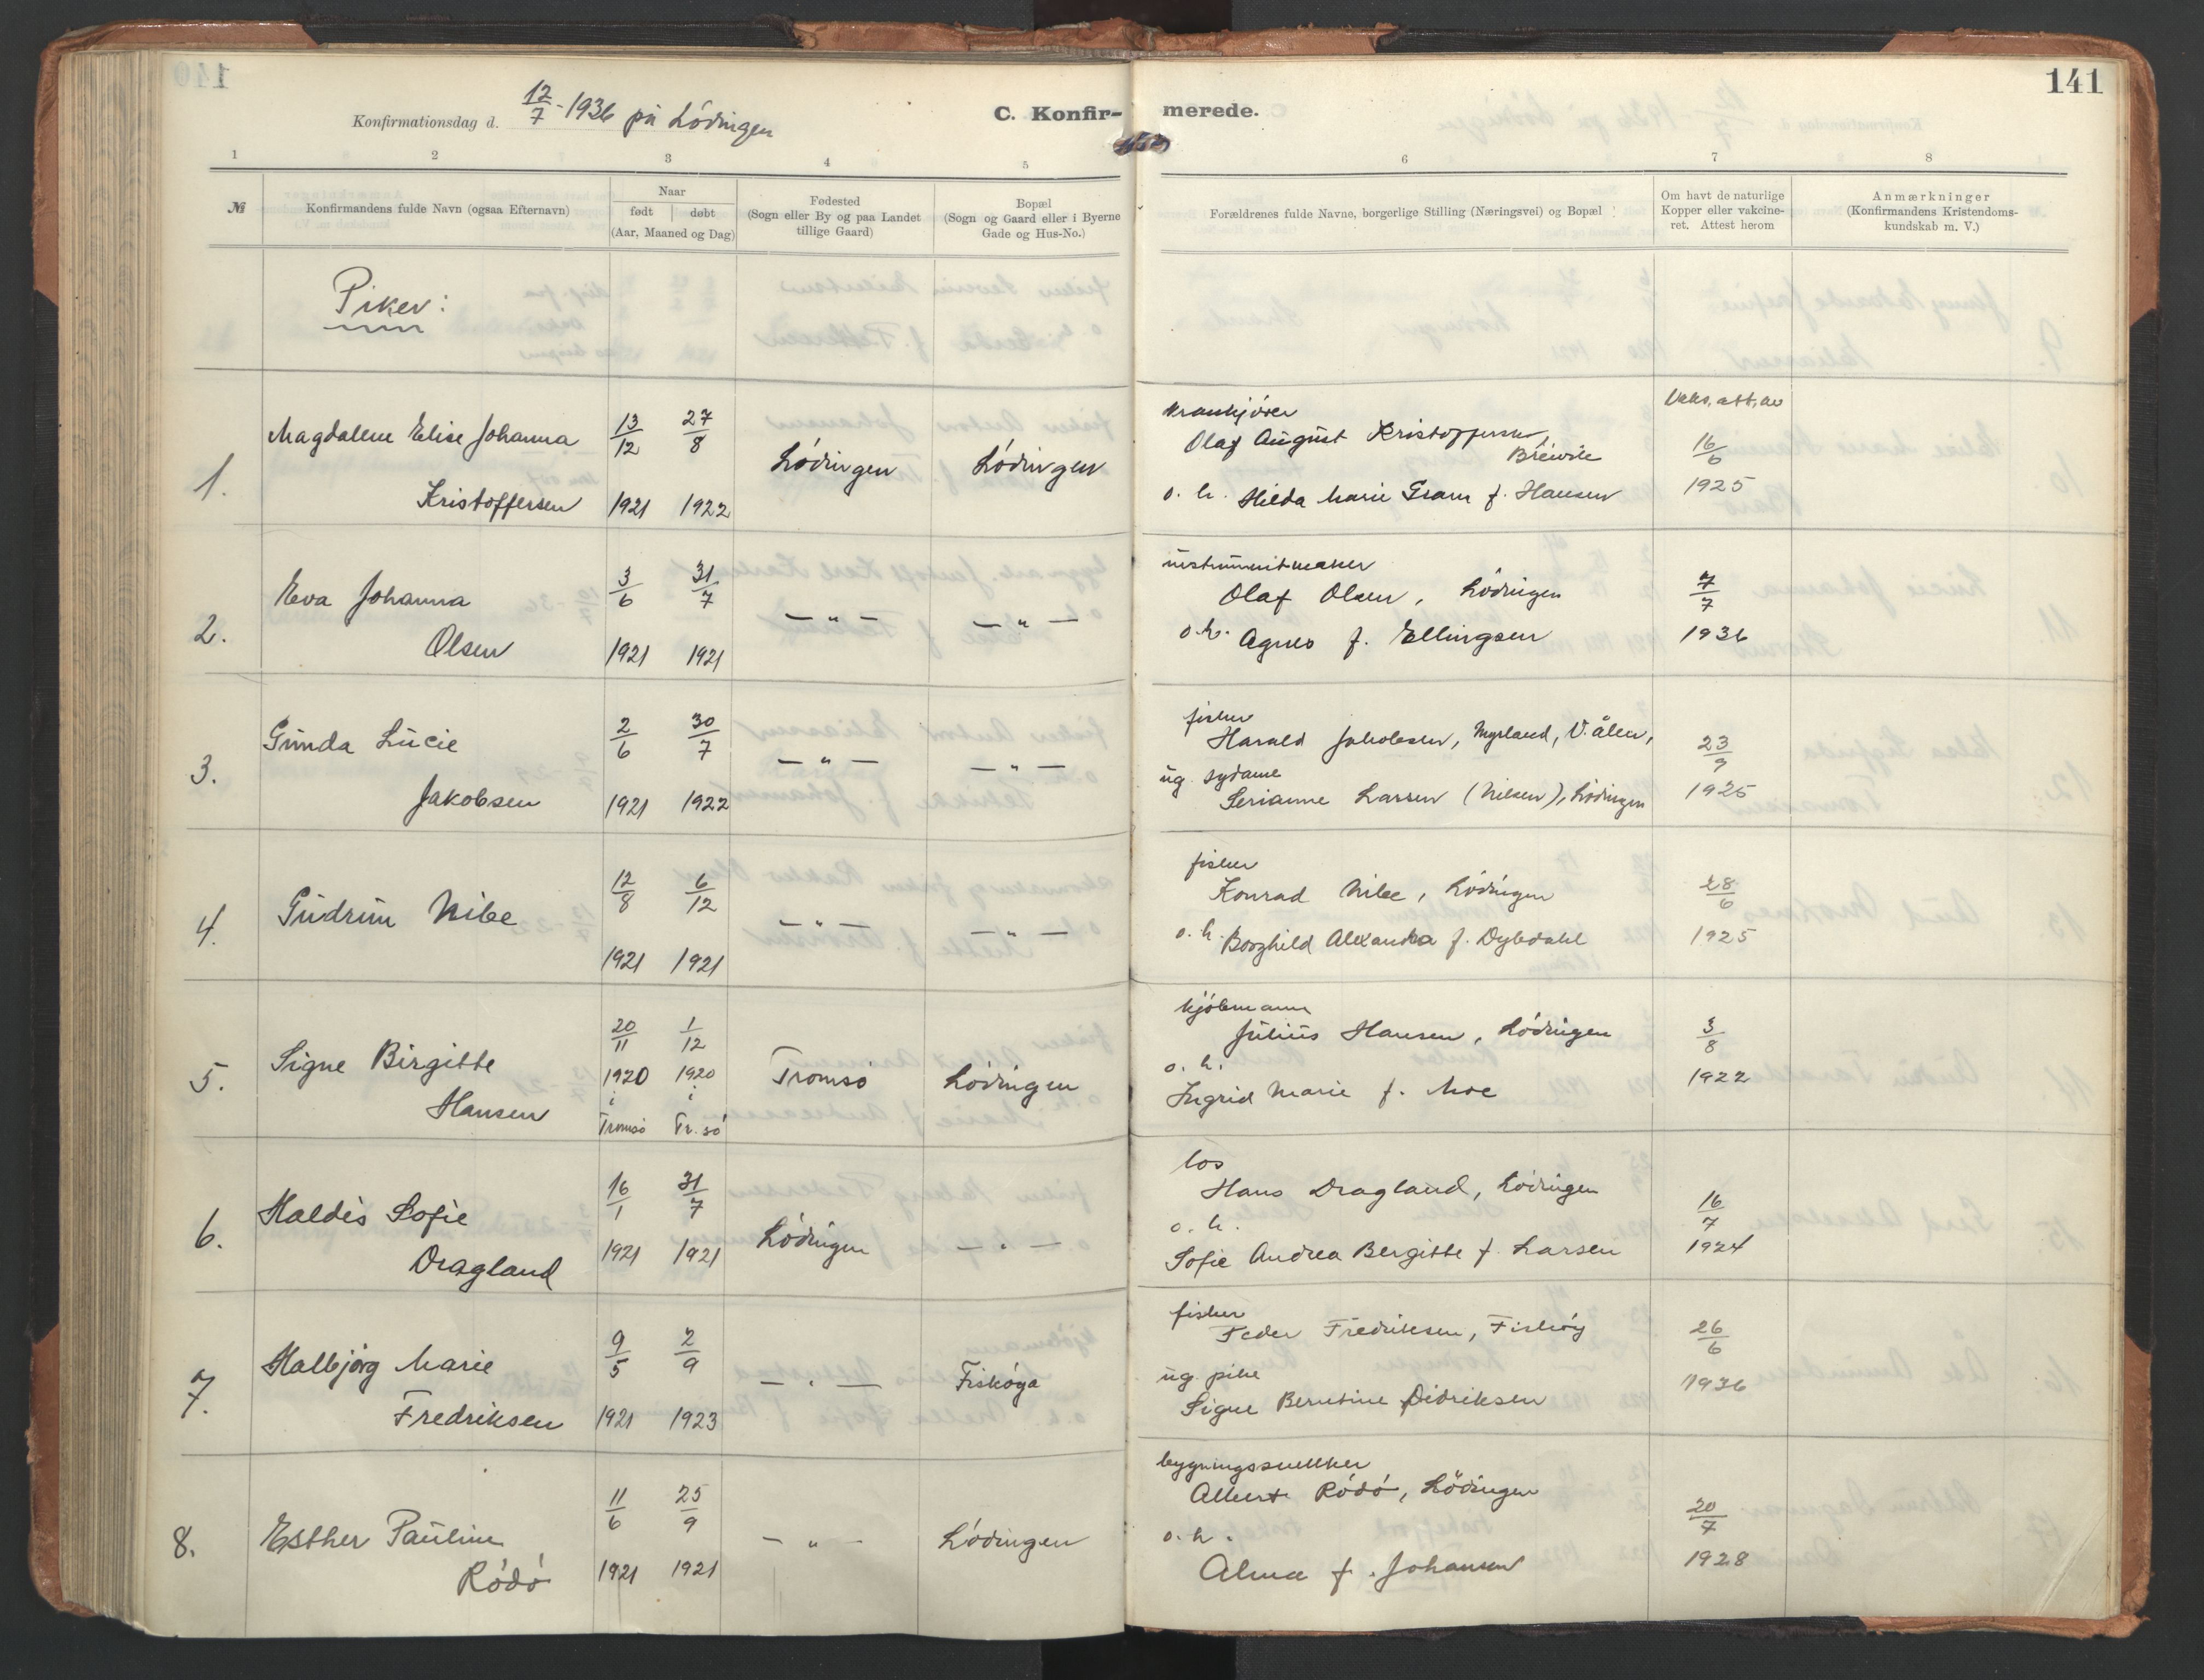 140
141
Konfirmationsdag d. 12/7 - 1936 på Lódingen
C. Konfir- merede.
1 2 3 4 5 6 7 8
№
Konfirmandens fulde Navn (ogsaa Efternavn)
Naar
født døbt
(Aar, Maaned og Dag)
Fødested
(Sogn eller By og paa Landet
tillige Gaard)
Bopæl
(Sogn og Gaard eller i Byerne
Gade og Hus-No.)
Forældrenes fulde Navne, borgerlige Stilling (Næringsvei) og Bopæl
Om havt de naturlige
Kopper eller vakcine-
ret. Attest herom
Anmærkninger
(Konfirmandens Kristendoms-
kundskab m. V.)
Piker:
1. Magdalene Elise Johanna
Kristoffersen
13/12 1921
27/8 1922
Lódingen
Lódingen
Olaf August Kristoffersen,
o. h. Hilda Marie Gram f. Hansen
Vaks. att. av
16/6
1925
2. Eva Johanna
Olsen
3/6 1921
31/7 1921
— " —
— " —
instrumentmaker
Olaf Olsen, Lódingen
o. h. Agnes f. Ellingsen
7/7
1936
3. Gunda Lucie
Jakobsen
2/6 1921
30/7 1922
— " —
— " —
fisker
Harald Jakobsen, Myrland, V.ålen,
ug. sydame
Serianne Larsen (Nilsen), Lódingen
23/9
1925
4. Gudrun Nibe
12/8 1921
6/12 1921
— " —
— " —
fisker
Konrad Nibe, Lódingen
o. h. Borghild Alexandra f. Dybdahl
28/6
1925
5. Signe Birgitte
Hansen
20/11 1920 i Tromsó
1/12 1920 i Tr. só
Tromsó
Lódingen
kjóbmann
Julius Hansen, Lódingen
o. h.
Ingrid Marie f. Moe
3/8
1922
6. Haldis Sofie
Dragland
16/1 1921
31/7 1921
Lódingen
— " —
los
Hans Dragland, Lódingen
o. h.
Sofie Andrea Bergitte f. Larsen
16/7
1924
7. Halbjórg Marie
Fredriksen
9/5 1921
2/9 1923
— " —
Fiskóya
fisker
Peder Fredriksen, Fiskóy
ug. pike
Signe Berntine Didriksen
26/6
1936
8. Esther Pauline
Ródó
11/6 1921
25/9 1921
— " —
Lódingen
bygningssnekker
Albert Ródó, Lódingen
o. h.
Alma f. Johansen
20/7
1928